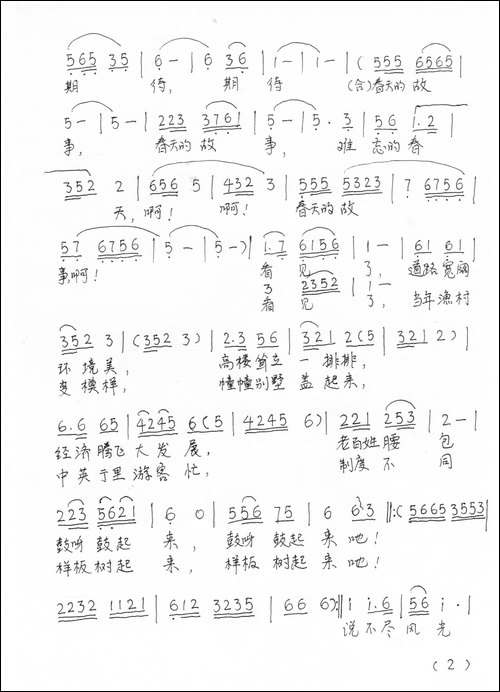 565 35 | 6 - | 6 36 | i - | i - | ( 555 6565 |
期 待, 期 待 (合)春天的故
5 - | 5 - | 223 3761 | 5 - | 5· 3 | 56 1.2 |
事, 春天的故 事, 难 忘的春
352 2 | 656 5 | 432 3 | 555 5323 | ? 6756 |
天,啊! 啊! 春天的故
57 6756 | 5 - | 5 - ) | 1.7 6156 | 1 - | 61 61 |
事,啊! 看 见 了, 道路宽阔
3 2352 | 1 -
看 见 了, 当年渔村
352 3 | (352 3) | 2.3 56 | 321 2(5 | 321 2) |
环境美, 高楼耸立一排排,
变模样, 幢幢别墅盖起来,
6.6 65 | 4245 6(5 | 4245 6) | 221 253 | 2 - |
经济腾飞大发展, 老百姓腰 包
中英于里游客忙, 制度不 同
223 5621 | 6 0 | 556 75 | 6 63 ‖:(5665 3553 |
鼓呀鼓起 来, 鼓呀 鼓起来吧!
样板树起 来, 样板 树起来吧!
2232 1121 | 612 3235 | 66 6):‖ i i.6 | 56 i · |
说不尽风 光
(2)